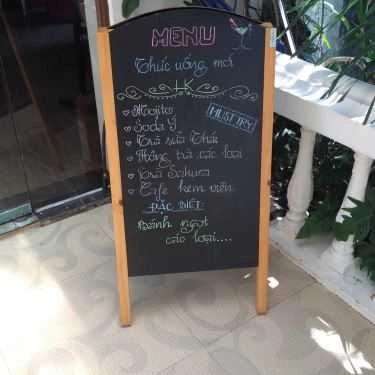 MENU
Thức uống mới
HK
Mojito
Soda Ý
MUST TRY
Trà sữa Thái
Hồng trà các loại
Trà Sakura
Cafe kem viên
ĐẶC BIỆT
Bánh ngọt
các loại....